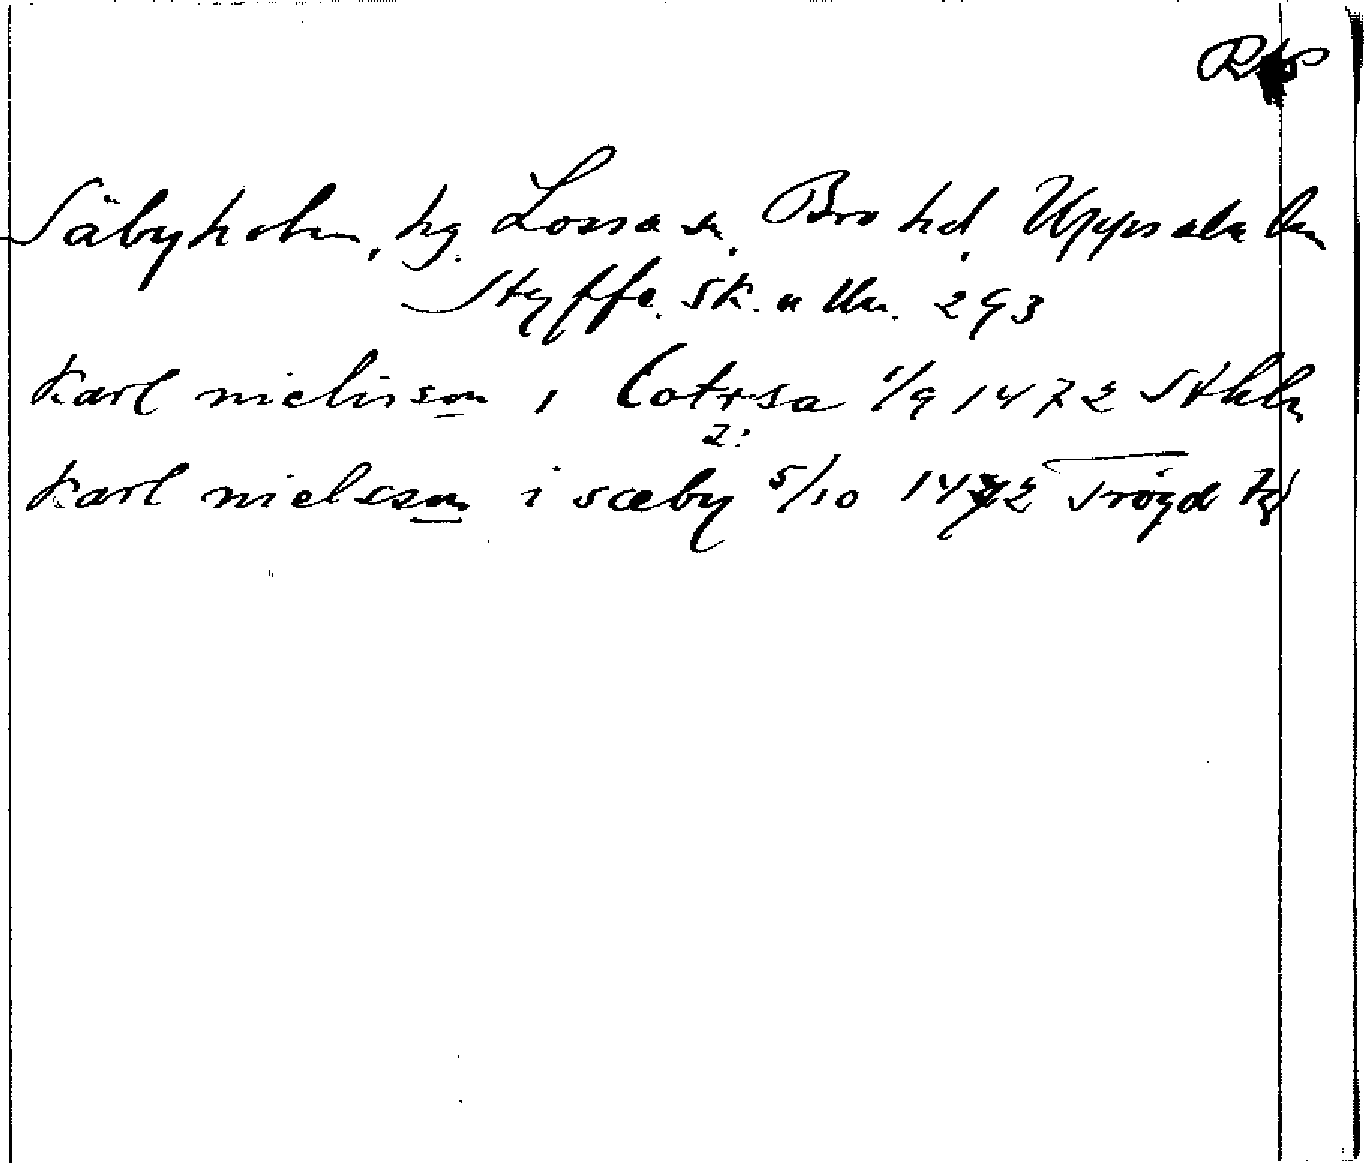 Säbyholm, hg. Lossa sn. Bro hd. Uppsala ln
Styffe. Sk. u Un. 293
Karl nielisson i Lotrsa 1/9 1472 Sthlm
2:
Karl nielsson i sæby 5/10 1472 Trögd hd